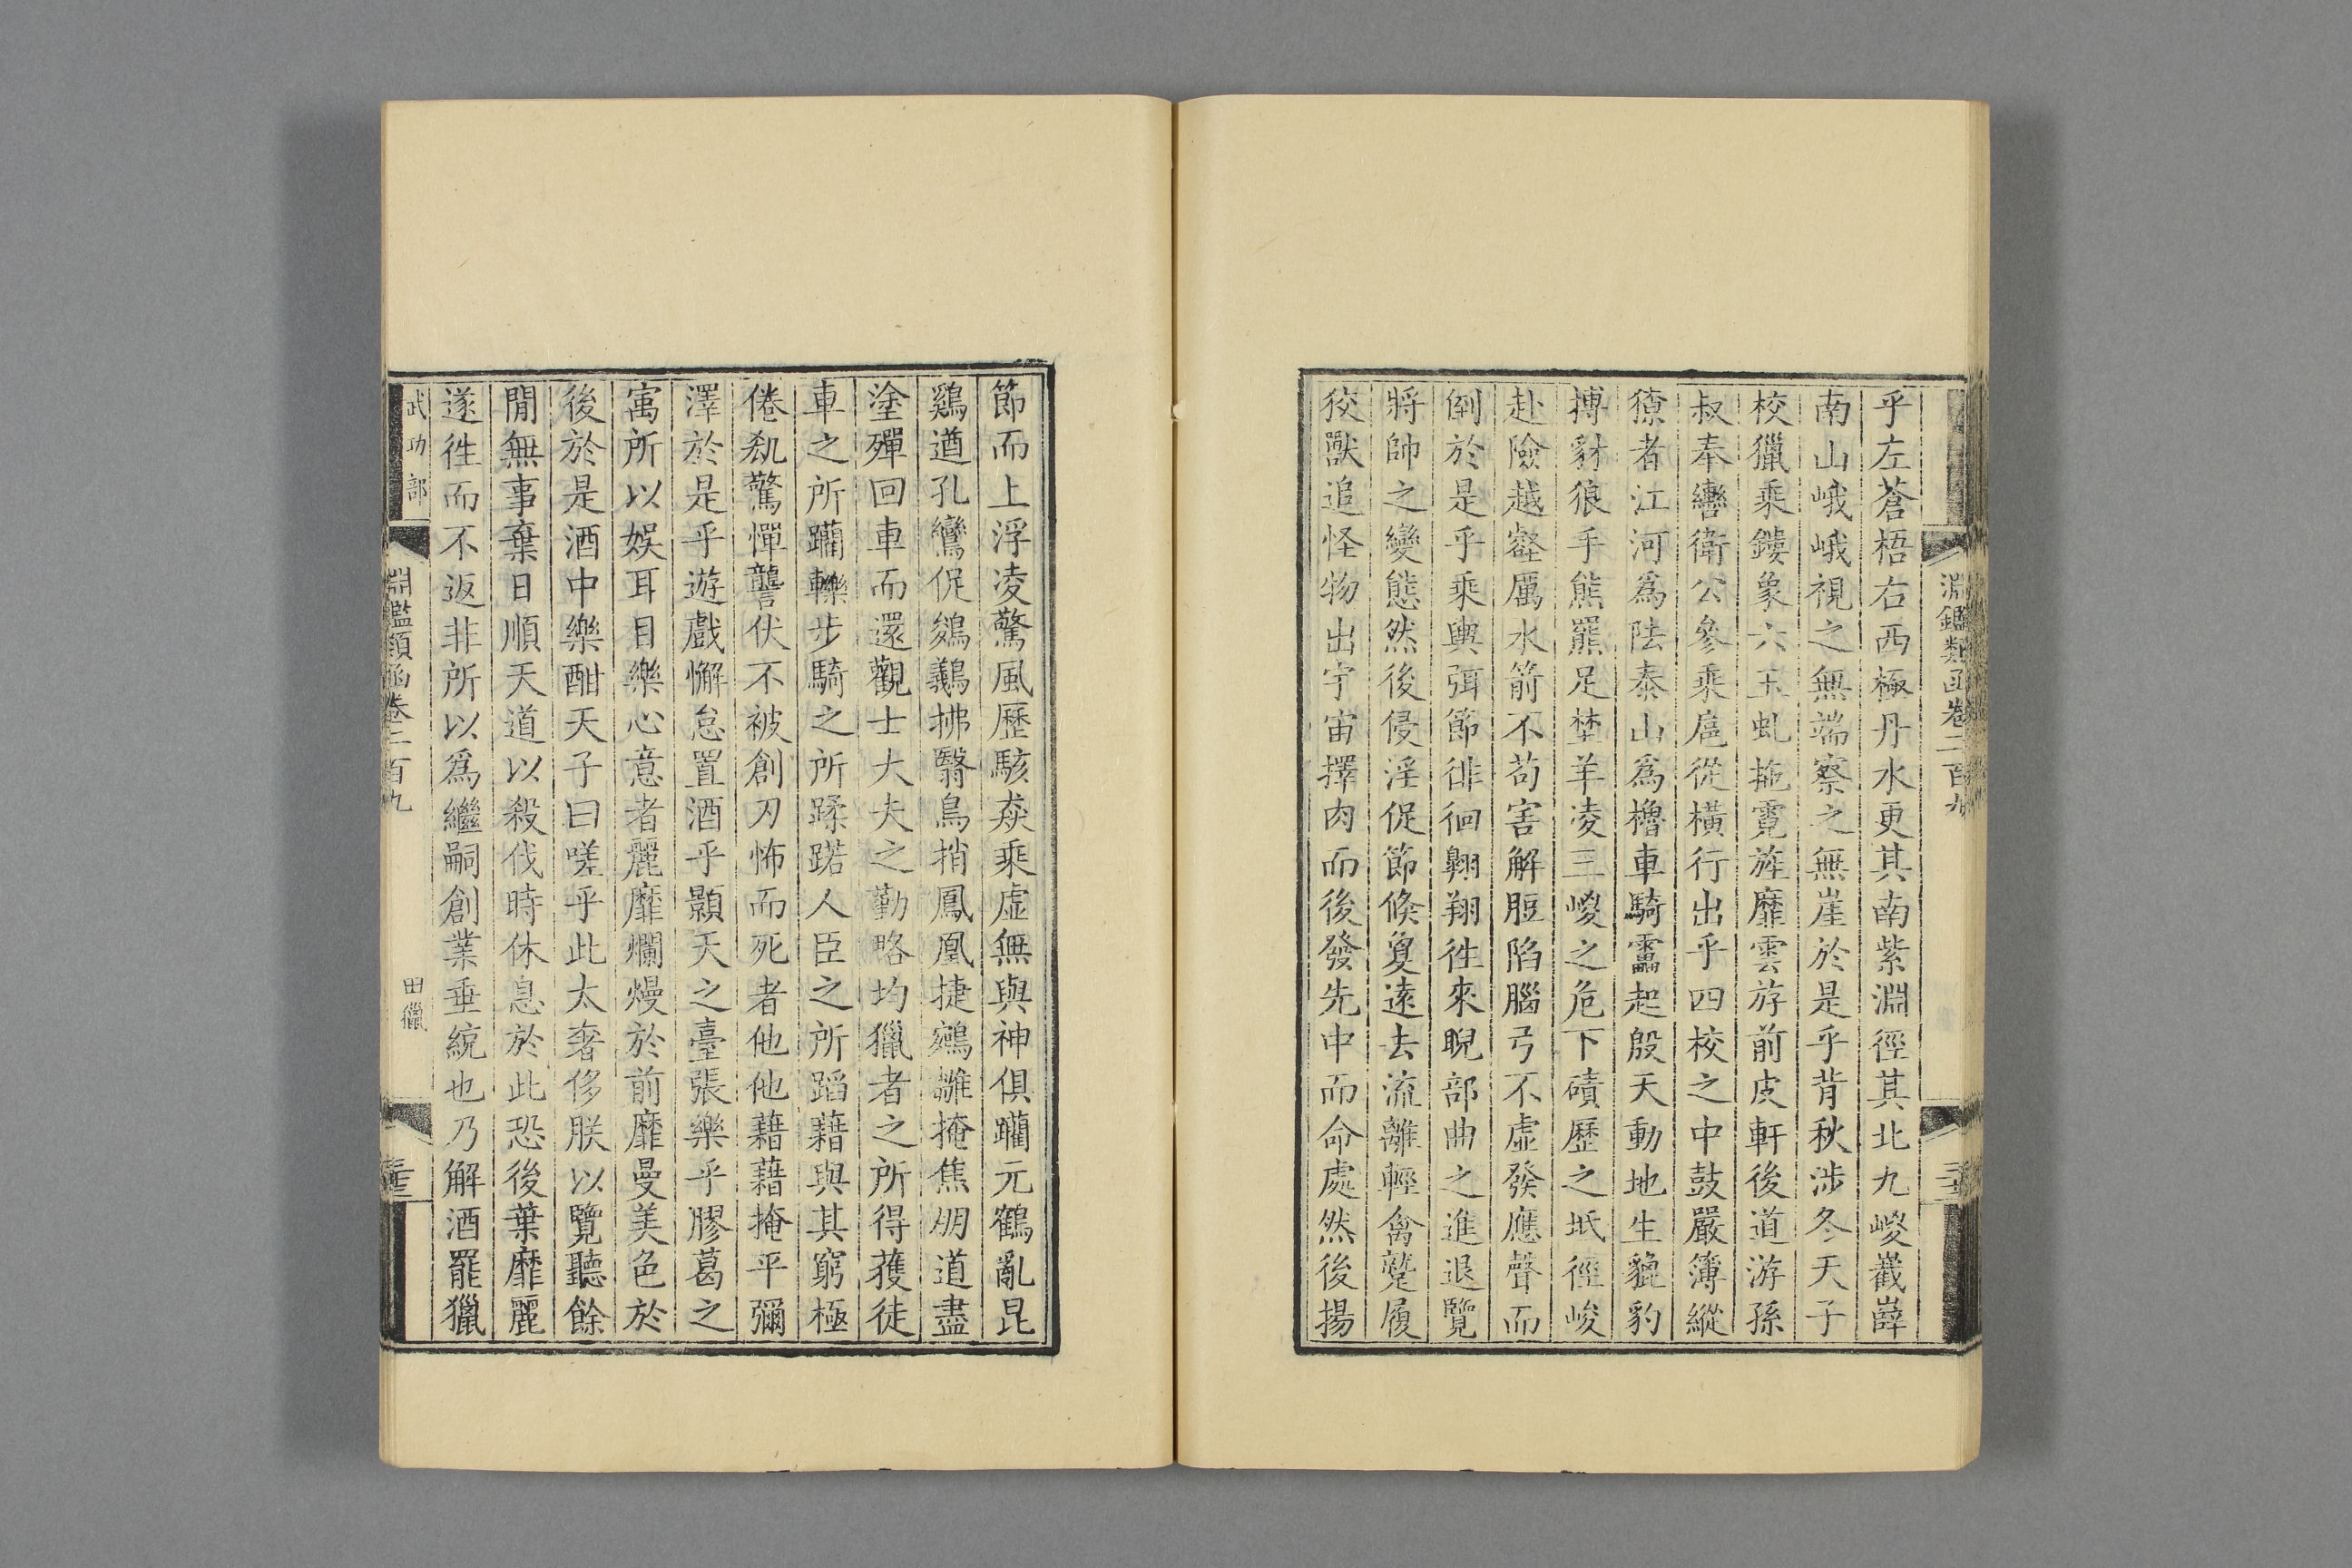 淵鑑類函卷二百九
乎左蒼梧右西極丹水更其南紫淵徑其北九嵕巀嶭
南山峨峨視之無端察之無崖於是乎背秋涉冬天子
校獵乘鏤象六玉虬拖霓旌靡雲斿前皮軒後道游孫
叔奉轡衛公參乘扈從橫行出乎四校之中鼓嚴簿縱
獠者江河爲阹泰山爲櫓車騎靁起殷天動地生貔豹
搏豺狼手熊羆足埜羊凌三嵕之危下磧歷之坻徑峻
赴險越壑厲水箭不苟害解脰陷腦弓不虛發應聲而
倒於是乎乘輿弭節徘徊翺翔徃來睨部曲之進退覽
將帥之變態然後侵淫促節倏敻遠去流離輕禽蹵履
狡獸追怪物出宇宙擇肉而後發先中而命處然後揚
節而上浮凌驚風歷駭猋乘虛無與神俱躪元鶴亂昆
鷄遒孔鸞促鵕鸃拂翳鳥捎鳳凰捷鵷雛掩焦朋道盡
塗殫回車而還觀士大夫之勤略均獵者之所得獲徒
車之所躪轢步騎之所蹂踖人臣之所蹈藉與其窮極
倦䎱驚憚讋伏不被創刃怖而死者他他藉藉掩平彌
澤於是乎遊戲懈怠置酒乎顥天之臺張樂乎膠葛之
寓所以娛耳目樂心意者麗靡爛熳於前靡曼美色於
後於是酒中樂酣天子曰嗟乎此太奢侈朕以覽聽餘
閒無事棄日順天道以殺伐時休息於此恐後葉靡麗
遂徃而不返非所以爲繼嗣創業垂統也乃解酒罷獵
武功部
淵鑑類函卷二百九
田獵